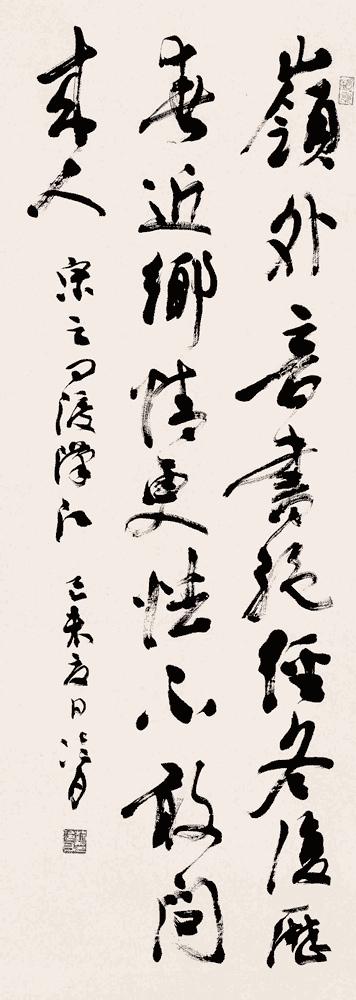 嶺外音書絕經冬復歷
春近鄉情更怯不敢問
來人 宋之問渡漢江 己未夏日